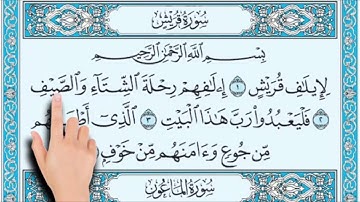 سُورَةُ قُرَيْشٍ
بِسْمِ ٱللَّهِ ٱلرَّحْمَٰنِ ٱلرَّحِيمِ
لِإِيلَٰفِ قُرَيْشٍ ١ إِۦلَٰفِهِمْ رِحْلَةَ ٱلشِّتَآءِ وَٱلصَّيْفِ
٢ فَلْيَعْبُدُوا۟ رَبَّ هَٰذَا ٱلْبَيْتِ ٣ ٱلَّذِىٓ
مِّن جُوعٍ وَءَامَنَهُم مِّنْ خَوْفٍۭ
سُورَةُ ٱلْمَاعُونِ